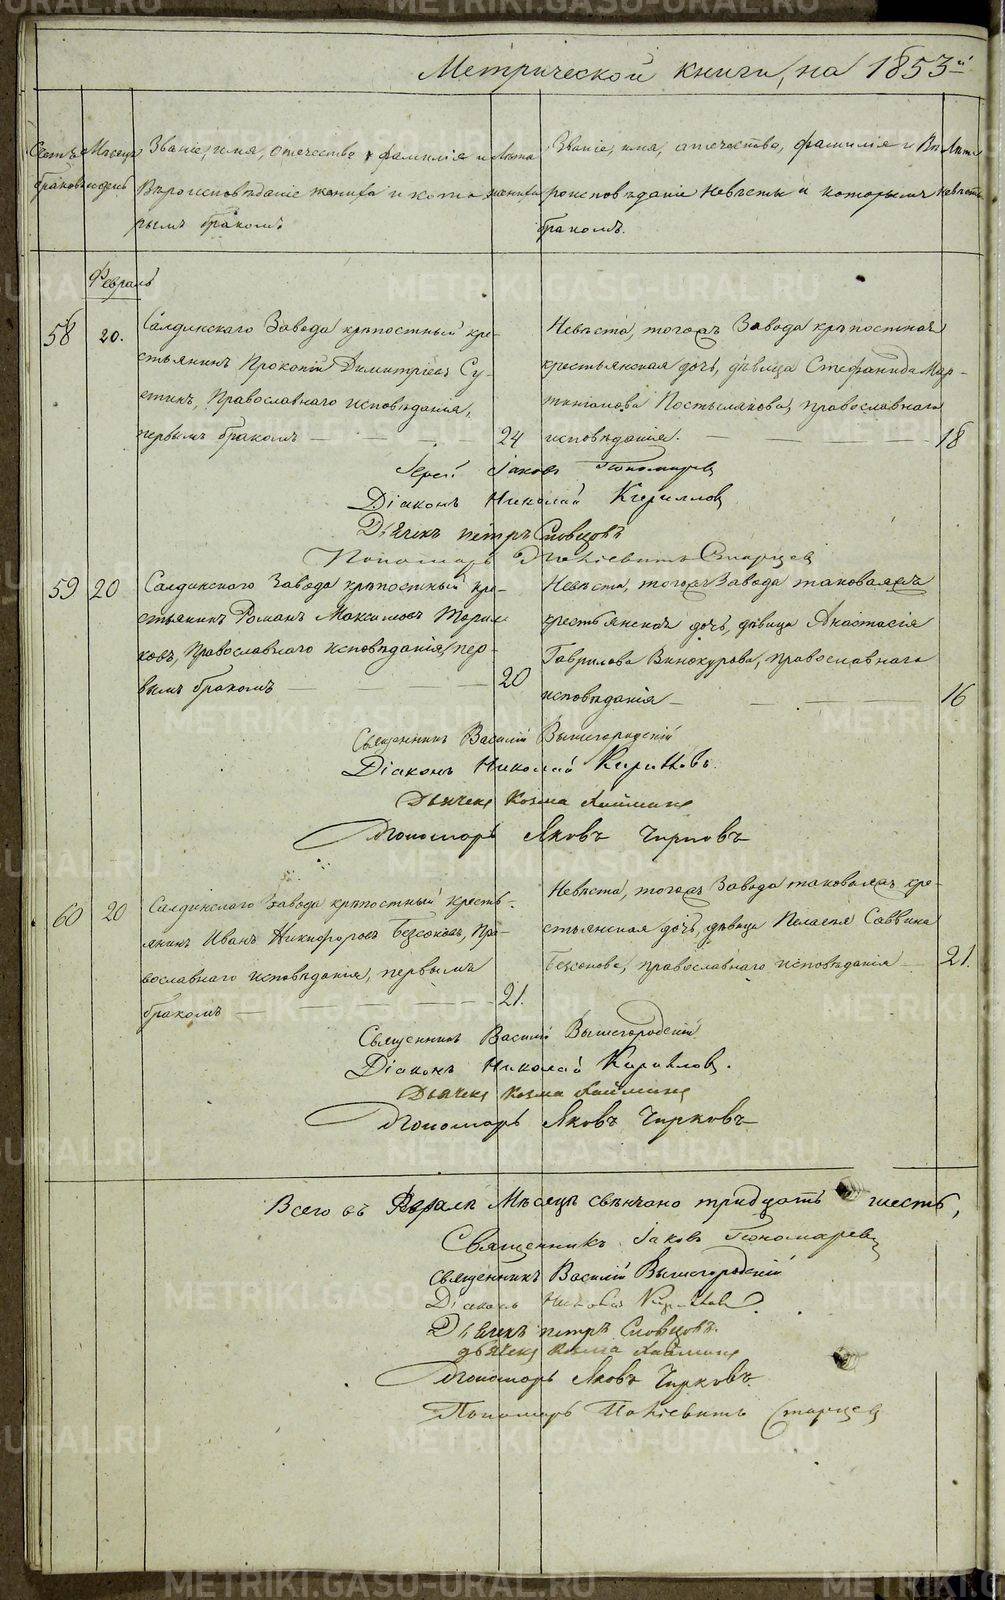 Метрической книги, на 1853й
Счетъ браковъ
Месяцъ и день
Званіе, имя, отечество, фамилія и
Вѣроисповѣданіе жениха и кото-
рымъ бракомъ
Лѣта жениха
Званіе, имя, отечество, фамилія и Вѣ-
роисповѣданіе Невѣсты и которымъ
бракомъ.
Лѣта невѣсты
Февраль
58
20.
Салдинскаго Завода крѣпостный кре-
стьянинъ Прокопій Димитріевъ Су-
стинъ, Православнаго исповѣданія,
первымъ бракомъ
24
Невѣста, тогожъ Завода крѣпостная
крестьянская дочь, дѣвица Стефанида Мар-
Постылякова, православнаго
исповѣданія.
18
Іерей Іаковъ Пономаревъ
Діаконъ Николай Кирилловъ
Дьячекъ петръ Словцовъ
Пономарь Старцев
59
20
Салдинскаго Завода крѣпостный кре-
стьянинъ Романъ Максимовъ
ковъ, Православнаго исповѣданія, пер-
вымъ бракомъ
20
Невѣста, тогожъ Завода таковаяжъ
крестьянская дочь, дѣвица Анастасія
Гаврилова Винокурова, православнаго
исповѣданія
16
Священникъ Василій Вышегородскій
Діаконъ Николай Кирилловъ.
Дьячекъ Козма
Пономарь Яковъ Чирковъ
60
20
Салдинскаго завода крѣпостный кресть-
янинъ Иванъ Никифоровъ Безсоновъ, Пра-
вославнаго исповѣданія, первымъ
бракомъ
21.
Невѣста, тогожъ Завода таковаяжъ кре-
стьянская дочь, дѣвица Пелагея Саввина
Безсонова, православнаго исповѣданія
21.
Священникъ Василій Вышегородскій
Діаконъ Николай Кирилловъ.
Дьячекъ Козма
Пономарь Яковъ Чирковъ
Всего въ Февралѣ Мѣсяцѣ свѣнчано тридцать шесть,
Священникъ Іаковъ Пономаревъ
Священникъ Василій Вышегородскій
Діаконъ Николай Кирилловъ.
Дьячекъ петръ Словцовъ.
дьячекъ Козма
Пономарь Яковъ Чирковъ.
Пономарь Старцев
METRIKI.GASO-URAL.RU